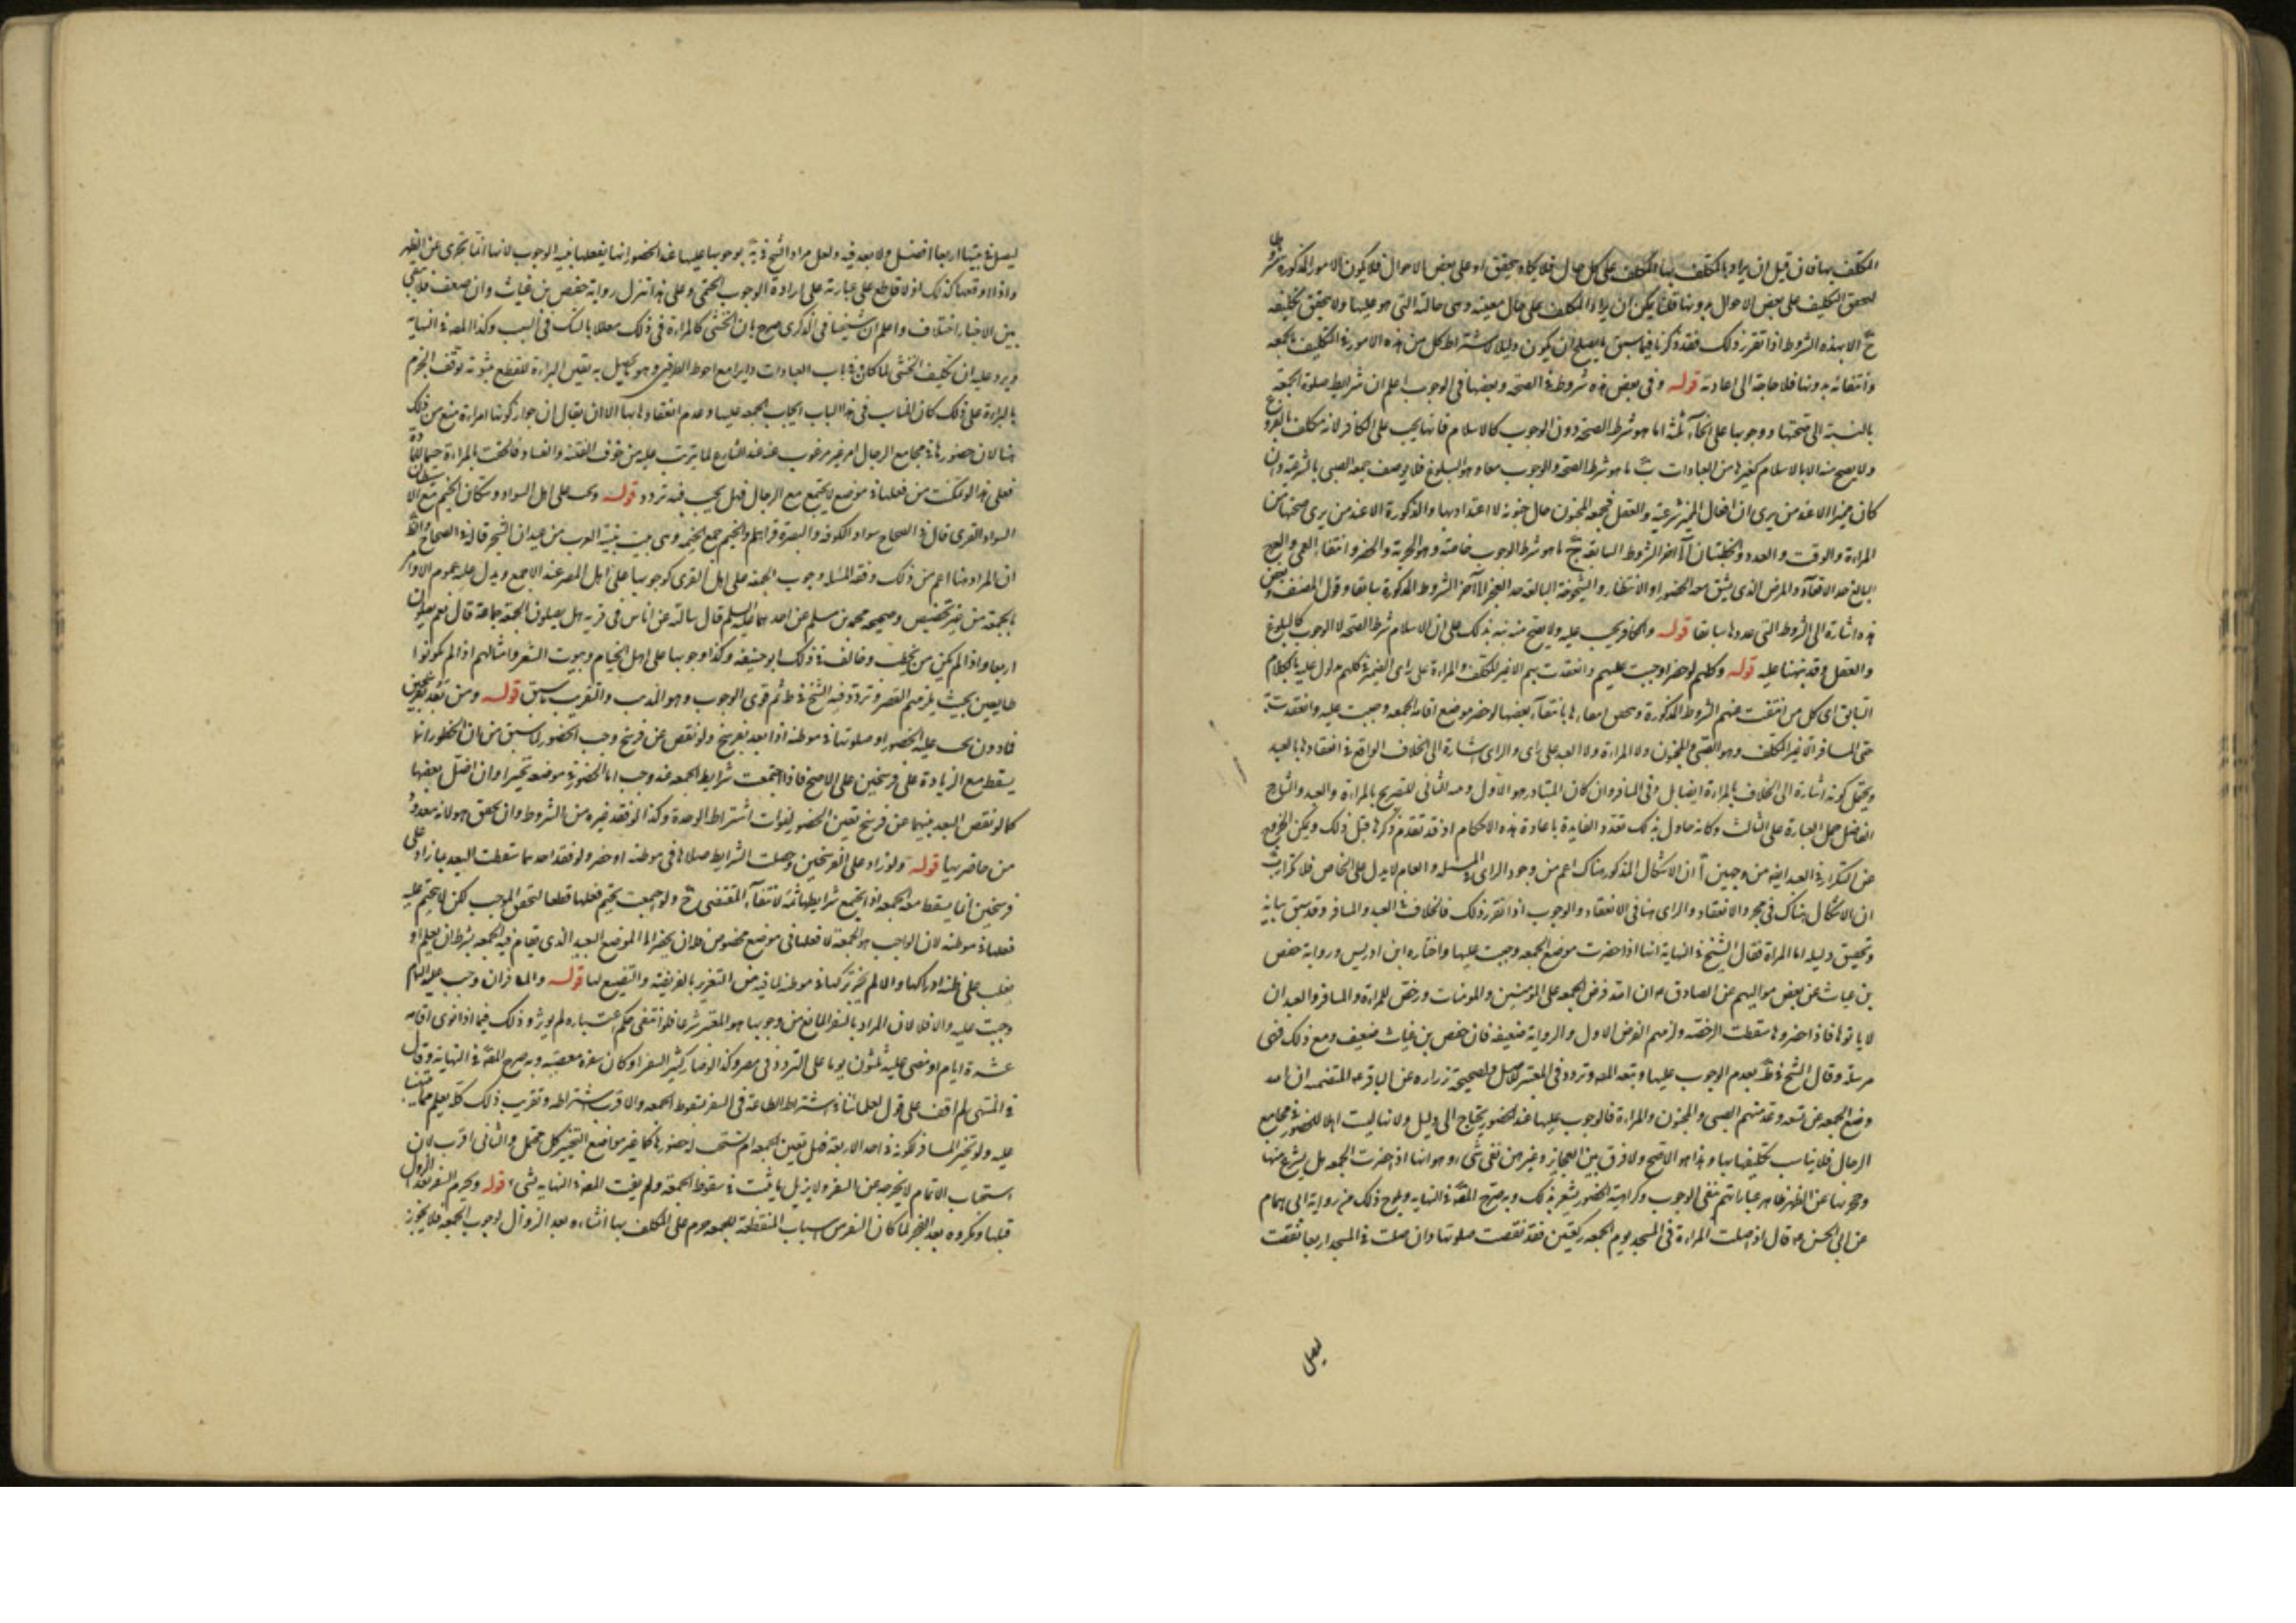 المكلف بها فان قيل ان يراد بالمكلف بها المكلف على كل حال فلا يكاد يتحقق او على بعض الاحوال فلا يكون الامور المذكورة شروطا
لتحقق التكليف على بعض الاحوال بدونها قلنا يمكن ان يراد المكلف على حال معينه وهى حالته التى هو عليها ولا يتحقق تكليفه
ح الا بهذه الشروط اذا تقرر ذلك فقد ذكرنا فيما سبق ما يصلح ان يكون دليلا لاشتراط كل من هذه الامور فى التكليف بالجمعه
وانتفائه بدونها فلا حاجة الى اعادته قوله وفى بعض هذه شروط فى الصحه وبعضها فى الوجوب اعلم ان شرايط صلوة الجمعة
بالنسبة الى صحتها ووجوبها على انحاء ثلثه ا ما هو شرط الصحة دون الوجوب كالاسلام فانها يجب على الكافر لانه مكلف بالفروع
ولا يصح منه الا بالاسلام كغيرها من العبادات ب ما هو شرط الصحة والوجوب معا وهو البلوغ فلا يوصف جمعه الصبى بالشرعية وان
كان مميزا الا عند من يرى ان افعال المميز شرعيه والعقل فجمعه المجنون حال جنونه لا اعتداد بها والذكورة الا عند من يرى صحتها من
المراءة والوقت والعدد والخطبتان الى اخر الشروط السابقه ج ما هو شرط الوجوب خاصة وهو الحرية والحضر وانتفاء العمى والعرج
البالغ حد الاقعاد والمرض الذى يشق معه الحضور او الانتظار والشيخوخة البالغه حد العجز الى آخر الشروط المذكورة سابقا وقول المصنف وبعض
هذه اشارة الى الشروط التى عددها سابقا قوله والكافر يجب عليه ولا يصح منه نبه بذلك على ان الاسلام شرط الصحة لا الوجوب كالبلوغ
والعقل وقد بينا عليه قوله وكلهم لو حضروا وجبت عليهم وانعقدت بهم الا غير المكلف والمراءة على راى الضمير فى كلهم مدلول عليه بالكلام
السابق اى كل من انتفت عنهم الشروط المذكورة وحصل امعاءها بانتفاء بعضها لو حضر موضع اقامه الجمعه وجبت عليه وانعقدت به
حتى المسافر الا غير المكلف وهو الصبى والمجنون ولا المراءة ولا العبد على راى والراى اشارة الى الخلاف الواقع فى انعقادها بالعبد
ويحتمل كونه اشارة الى الخلاف بالمراءة ايضا بل وفى المسافر وان كان المتبادر هو الاول ومه الثانى للتصريح بالمراءة والعبد والشارح
الفاضل حمل العبارة على الثالث وكانه حاول بذلك تعدد الفايدة باعادة هذه الاحكام اذ قد تقدم ذكرها قبل ذلك ويمكن الخروج
عن التكرار فى العبد ايضه من وجهين أ ان الاشكال المذكور هناك اعم من وجود الراى فى المسئله والعام لا يدل على الخاص فلا تكرار ب
ان الاشكال هناك فى مجرد الانعقاد والراى هنا فى الانعقاد والوجوب اذا تقرر ذلك فالخلاف فى العبد والمسافر وقد سبق بيانه
وتحقيق دليله اما المراة فقال الشيخ فى النهاية انها اذا حضرت موضع الجمعه وجبت عليها واختاره ابن ادريس ورواية حفص
بن غياث عن بعض مواليهم عن الصادق ع ان الله فرض الجمعه على المؤمنين والمومنات ورخص للمراءة والمسافر والعبد ان
لا ياتوها فاذا حضروها سقطت الرخصة ولزمهم الفرض الاول والرواية ضعيفه فان حفص بن غياث ضعيف ومع ذلك فهى
مرسلة وقال الشيخ فى ط بعدم الوجوب عليها وتبعه المص وتردد فى المعتبر للاصل ولصحيحة زراره عن الباقر ع المتضمنه ان الله
وضع الجمعه عن تسعه وعد منهم الصبى والمجنون والمراءة فالوجوب عليها عند الحضور يحتاج الى دليل ولانها ليست اهلا للحضور فى مجامع
الرجال فلا يناسب تكليفها بها وهذا هو الاصح ولا فرق بين العجايز وغيرهن بقى شىء وهو انها اذا حضرت الجمعه هل يشرع منها
وتجزيها عن الظهر ظاهر عباراتهم بنفى الوجوب وكراهية الحضور يشعر بذلك وبه صرح المص فى النهايه ويلوح ذلك من رواية ابى همام
عن ابى الحسن ع قال اذا صلت المراءة فى المسجد يوم الجمعه ركعتين فقد نقصت صلوتها وان صلت فى المسجد اربعا نقصت
ليصل
ليصل فى بيتها اربعا افضل ولا بعد فيه ولعل مراد الشيخ فى يه بوجوبها عليها عند الحضور انها يفعلها بنية الوجوب لانها انما تجزى عن الظهر
واذا اوقعها كذلك اذ لا قاطع على عبارته على ارادة الوجوب الحتمى وعلى هذا تنزل رواية حفص بن غياث وان ضعف فلا يبقى
بين الاخبار اختلاف واعلم ان شيخنا فى الذكرى صرح بان الخنثى كالمراءة فى ذلك معللا بالشك فى السبب وكذا المص فى النهاية
ويرد عليه ان تكليف الخنثى لما كان فى باب العبادات دايرا مع احوط الطرفين وهو ما يحصل به يقين البراءة للقطع بثبوته توقف الجزم
بالبراءة على ذلك كان المناسب فى هذا الباب ايجاب الجمعه عليها وعدم انعقادها بها الا ان يقال ان جواز كونها امراءة منع من ذلك
هنا لان حضورها فى مجامع الرجال امر غير مرغوب عنه عند الشارع لما يترتب عليه من خوف الفتنه والفساد فالحقت بالمراءة
فعلى هذا لو تمكنت من فعلها فى موضع لا يجتمع مع الرجال فهل يجب فيه تردد قوله ويجب على اهل السواد وسكان الخيم مع الاستيطان
السواد القرى قال فى الصحاح سواد الكوفه والبصرة قراهما والخيم جمع الخيمه وهى بيت تبنيه العرب من عيدان الشجر قاله فى الصحاح والظ
ان المراد هنا اعم من ذلك وفقه المسئله وجوب الجمعة على اهل القرى كوجوبها على اهل المصر عند الاجمع ويدل عليه عموم الاوامر
بالجمعة من غير تخصيص وصحيحه محمد بن مسلم عن احدهما عليهما السلم قال سالته عن اناس فى قريه هل يصلون الجمعة جماعة قال نعم يصلون
اربعا واذا لم يكن من يخطب وخالف فى ذلك ابو حنيفه وكذا وجوبها على اهل الخيام وبيوت الشعر وامثالهم اذا لم يكونوا
ظاعنين بحيث يلزمهم القصر وتردد فيه الشيخ فى ط ثم قوى الوجوب وهو المذهب والتقريب ما سبق قوله ومن بعد بفرسخين
فادون يجب عليه الحضور او صلوتها فى موطنه اذا بعد بفرسخ ولو نقص عن فرسخ وجب الحضور لما سبق من ان الحضور انما
يسقط مع الزيادة على فرسخين على الاصح فاذا اجتمعت شرايط الجمعه عنده وجب اما الحضور فى موضعه تخيرا وان اختل بعضها
كما لو نقص البعد بينهما عن فرسخ تعين الحضور لفوات اشتراط الوحدة وكذا لو فقد غيره من الشروط وان تحقق هو لانه معدود
من حاضريها قوله ولو زاد على الفرسخين وحصلت الشرايط صلاها فى موطنه او حضر ولو فقد احدهما سقطت البعد بما زاد على
فرسخين انما يسقط معه الجمعه اذا لم يجتمع شرايطها ثمه لانتفاء المقتضى ح ولو اجتمعت تحتم فعلها قطعا لتحقق الموجب لكن لا يتحتم عليه
فعلها فى موطنه لان الواجب هو الجمعه لا فعلها فى موضع مخصوص فله ان يحضر الى الموضع البعيد الذى يقام فيه الجمعه بشرط ان يعلم او
يغلب على ظنه ادراكها والا لم يجز تركها فى موطنه لما فيه من التغرير بالفريضه والتضييع لها قوله والمسافر ان وجب عليه التمام
وجبت عليه والا فلا لان المراد بالسفر المانع من وجوبها هو المعتبر شرعا فلو انتفى حكم اعتباره لم يؤثر وذلك فيما اذا نوى اقامه
عشرة ايام او مضى عليه ثلثون يوما على التردد فى مصر وكذا لو صار كثير السفر او كان سفره معصيه وبه صرح المص فى النهاية وقال
فى المنتهى لم اقف على قول لعلمائنا فى اشتراط الطاعة فى السفر لسقوط الجمعه والاقرب اشتراطه وتقريب ذلك كله يعلم مما
عليه ولو تخير المسافر لكونه فى احد الاربعه فهل يتعين الجمعه ام يستحب له حضورها كما فى غير مواضع التخيير كل محتمل والثانى اقرب لان
استحباب الاتمام لا يخرجه عن السفر ولا يزيل ما يثبت فى سقوط الجمعة ولم يفت المص فى النهايه بشىء قوله ويحرم السفر بعد الزوال
قبلها ويكره بعد الفجر لما كان السفر من اسباب المسقطة للجمعه حرم على المكلف بها انشاءه بعد الزوال لوجوب الجمعه فلا يجوز